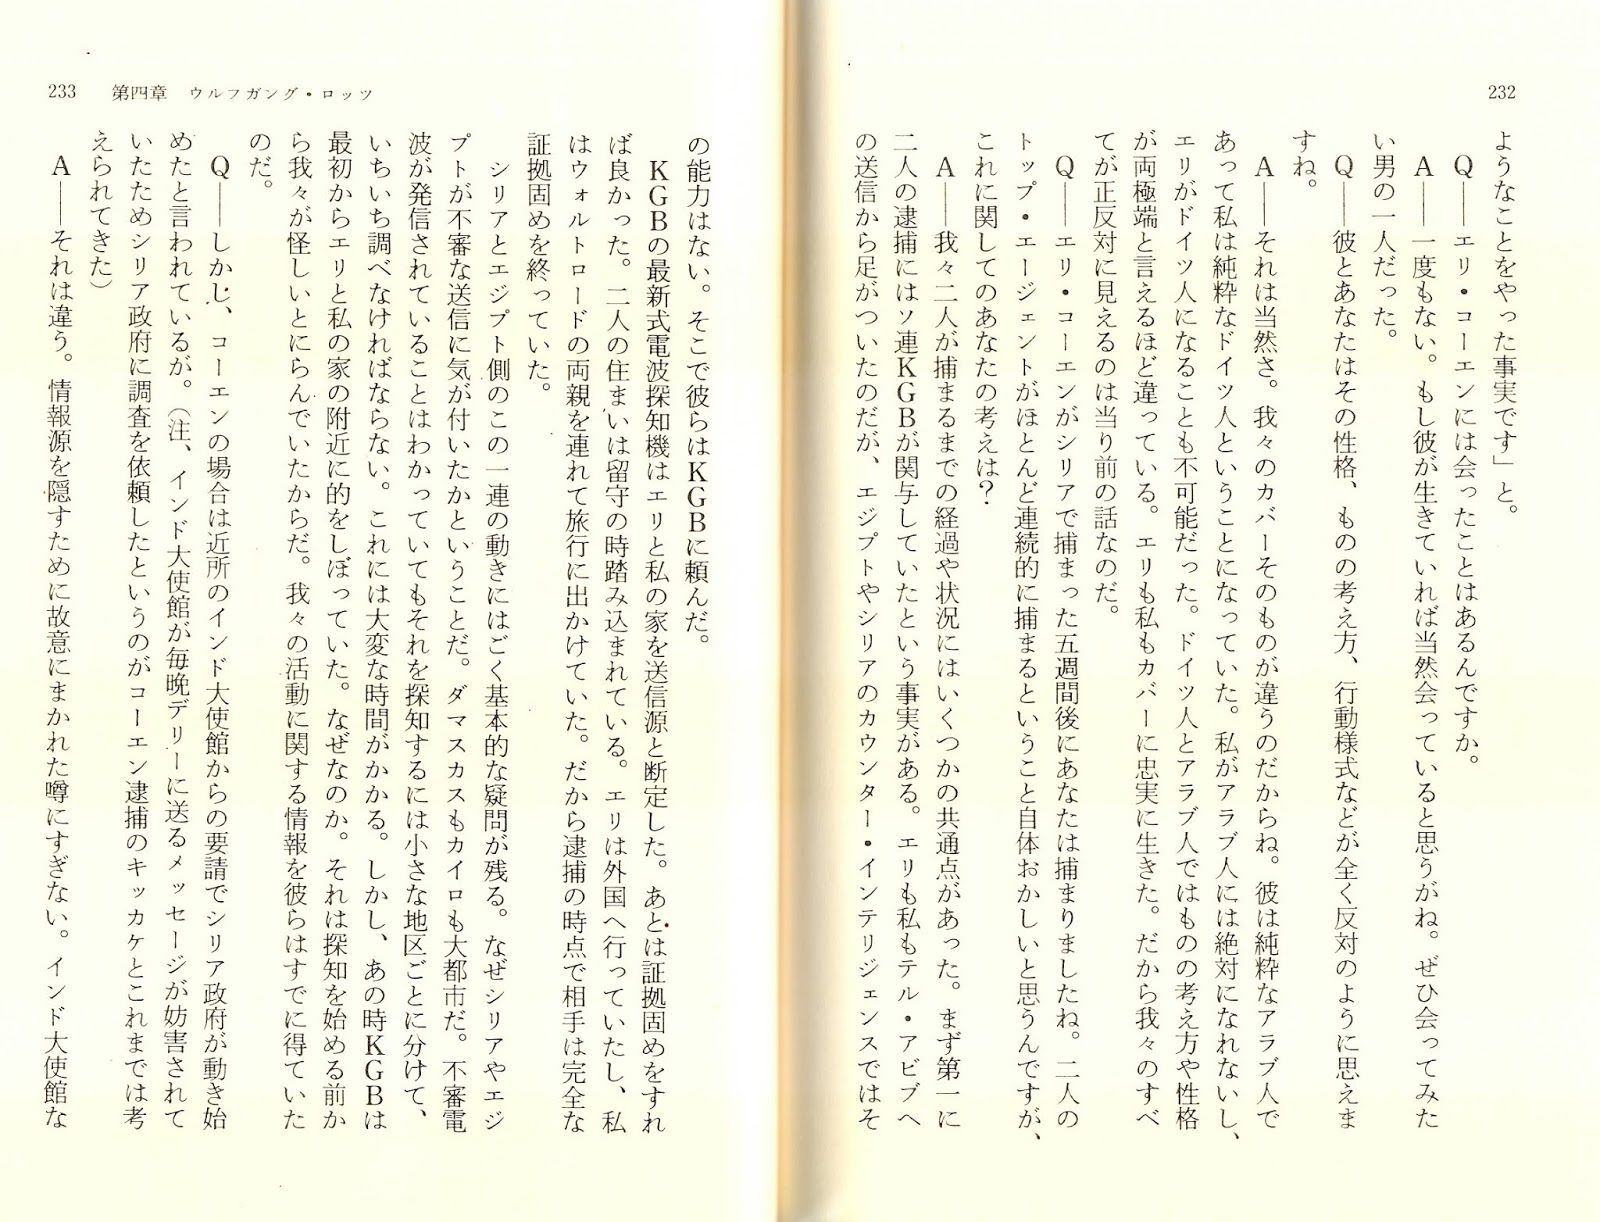 232
ようなことをやった事実です」と。
Q――エリ・コーエンには会ったことはあるんですか。
A――一度もない。もし彼が生きていれば当然会っていると思うがね。ぜひ会ってみた
い男の一人だった。
Q――彼とあなたはその性格、ものの考え方、行動様式などが全く反対のように思えま
すね。
A――それは当然さ。我々のカバーそのものが違うのだからね。彼は純粋なアラブ人で
あって私は純粋なドイツ人ということになっていた。私がアラブ人には絶対になれないし、
エリがドイツ人になることも不可能だった。ドイツ人とアラブ人ではものの考え方や性格
が両極端と言えるほど違っている。エリも私もカバーに忠実に生きた。だから我々のすべ
てが正反対に見えるのは当り前の話なのだ。
Q――エリ・コーエンがシリアで捕まった五週間後にあなたは捕まりましたね。二人の
トップ・エージェントがほとんど連続的に捕まるということ自体おかしいと思うんですが、
これに関してのあなたの考えは?
A――我々二人が捕まるまでの経過や状況にはいくつかの共通点があった。まず第一に
二人の逮捕にはソ連KGBが関与していたという事実がある。エリも私もテル・アビブへ
の送信から足がついたのだが、エジプトやシリアのカウンター・インテリジェンスではそ
233 第四章 ウルフガング・ロッツ
の能力はない。そこで彼らはKGBに頼んだ。
KGBの最新式電波探知機はエリと私の家を送信源と断定した。あとは証拠固めをすれ
ば良かった。二人の住まいは留守の時踏み込まれている。エリは外国へ行っていたし、私
はウォルトロードの両親を連れて旅行に出かけていた。だから逮捕の時点で相手は完全な
証拠固めを終っていた。
シリアとエジプト側のこの一連の動きにはごく基本的な疑問が残る。なぜシリアやエジ
プトが不審な送信に気が付いたかということだ。ダマスカスもカイロも大都市だ。不審電
波が発信されていることはわかっていてもそれを探知するには小さな地区ごとに分けて、
いちいち調べなければならない。これには大変な時間がかかる。しかし、あの時KGBは
最初からエリと私の家の附近に的をしぼっていた。なぜなのか。それは探知を始める前か
ら我々が怪しいとにらんでいたからだ。我々の活動に関する情報を彼らはすでに得ていた
のだ。
Q――しかし、コーエンの場合は近所のインド大使館からの要請でシリア政府が動き始
めたと言われているが。(注、インド大使館が毎晩デリーに送るメッセージが妨害されて
いたためシリア政府に調査を依頼したというのがコーエン逮捕のキッカケとこれまでは考
えられてきた)
A――それは違う。情報源を隠すために故意にまかれた噂にすぎない。インド大使館な